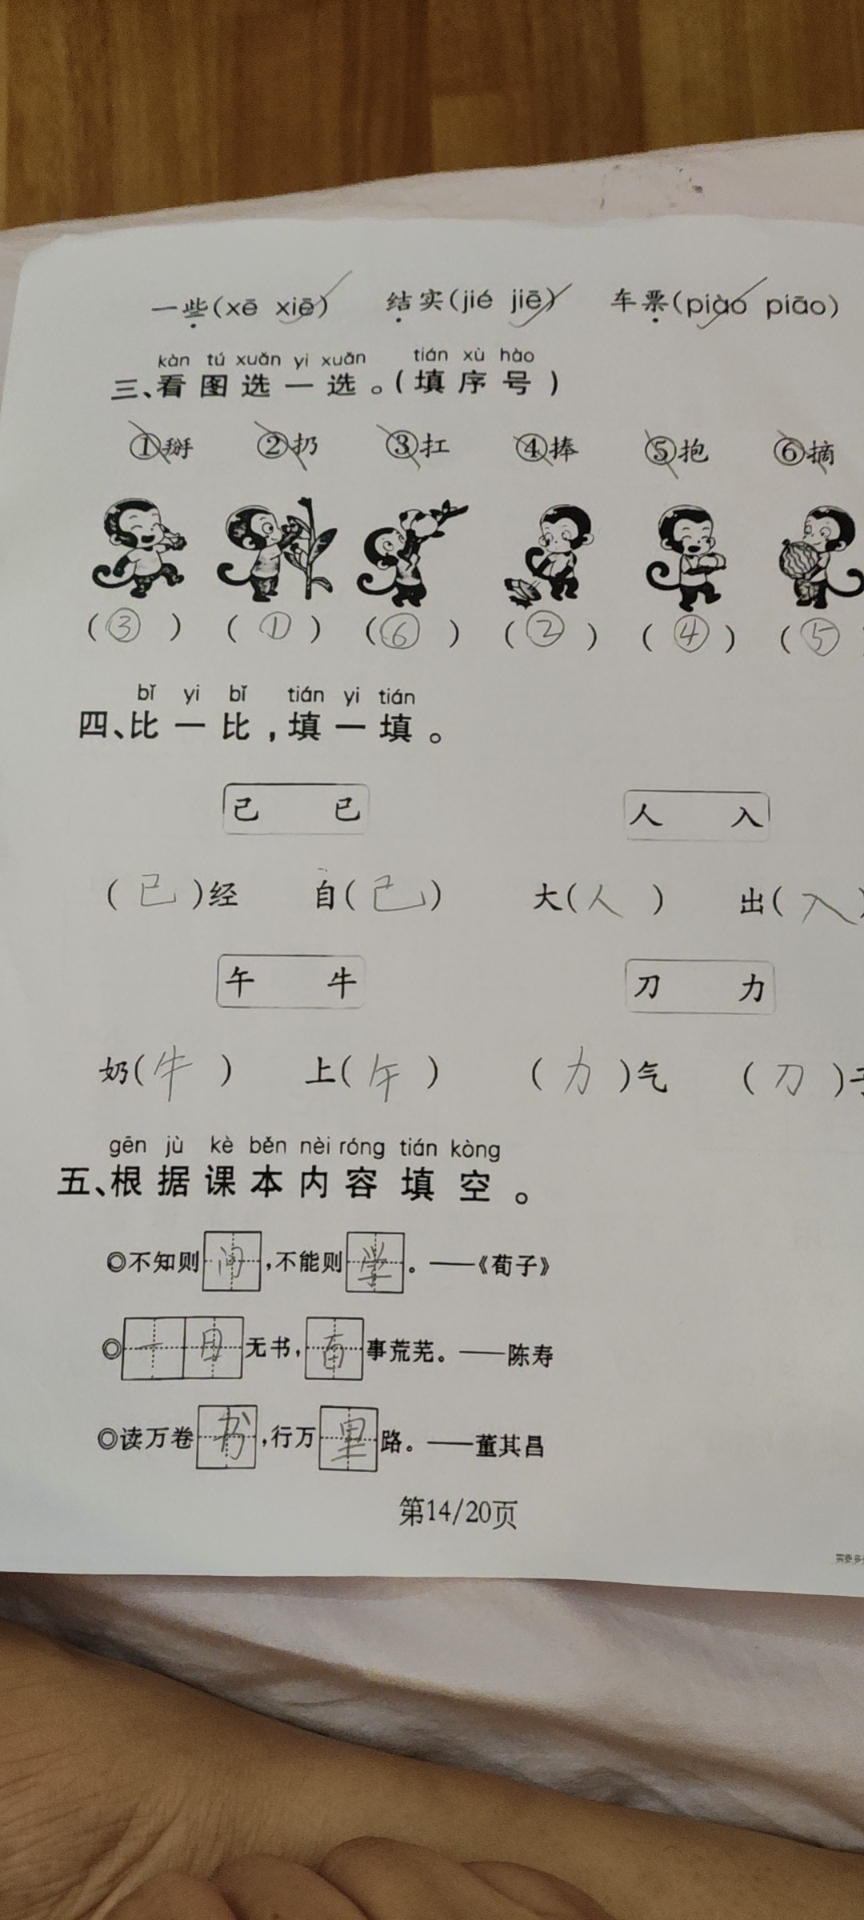 一些(xē xiē) 结实(jié jiē) 车票(piào piāo)
kàn tú xuǎn yi xuǎn tián xù hào
三、看图选一选。(填序号)
①掰 ②扔 ③扛 ④捧 ⑤抱 ⑥摘
(③) (①) (⑥) (②) (④) (⑤
bǐ yi bǐ tián yi tián
四、比一比,填一填。
己 已 人 入
(已)经 自(己) 大(人) 出(入)
午 牛 刀 力
奶(牛) 上(午) (力)气 (刀)
gēn jù kè běn nèi róng tián kòng
五、根据课本内容填空。
◎不知则问,不能则学。——《荀子》
◎一日无书,百事荒芜。——陈寿
◎读万卷书,行万里路。——董其昌
第14/20页